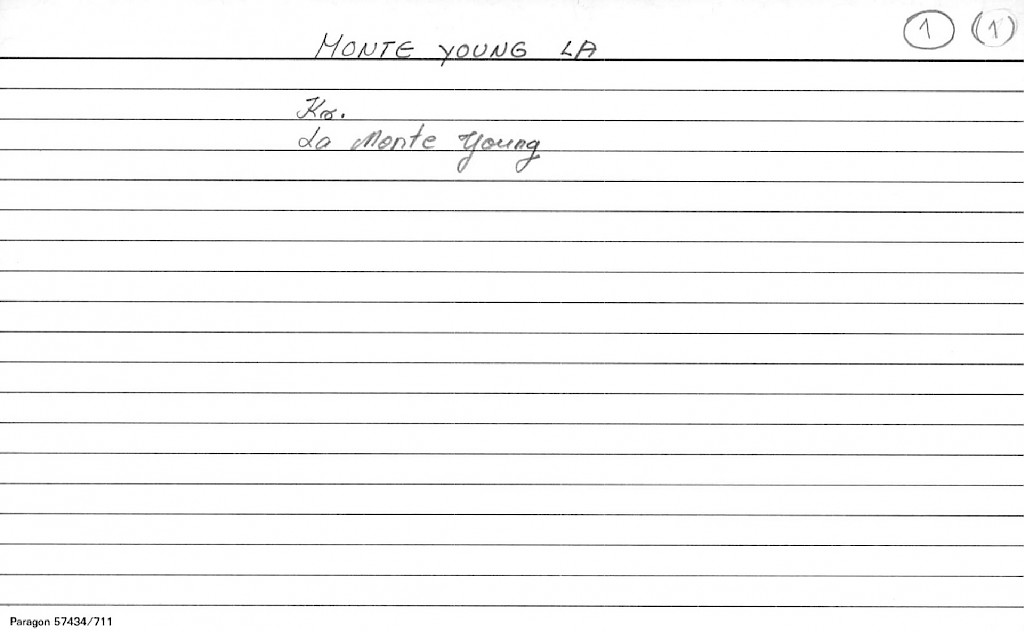 1 (1)
MONTE YOUNG LA
Kr.
La Monte Young
Paragon 57434/711